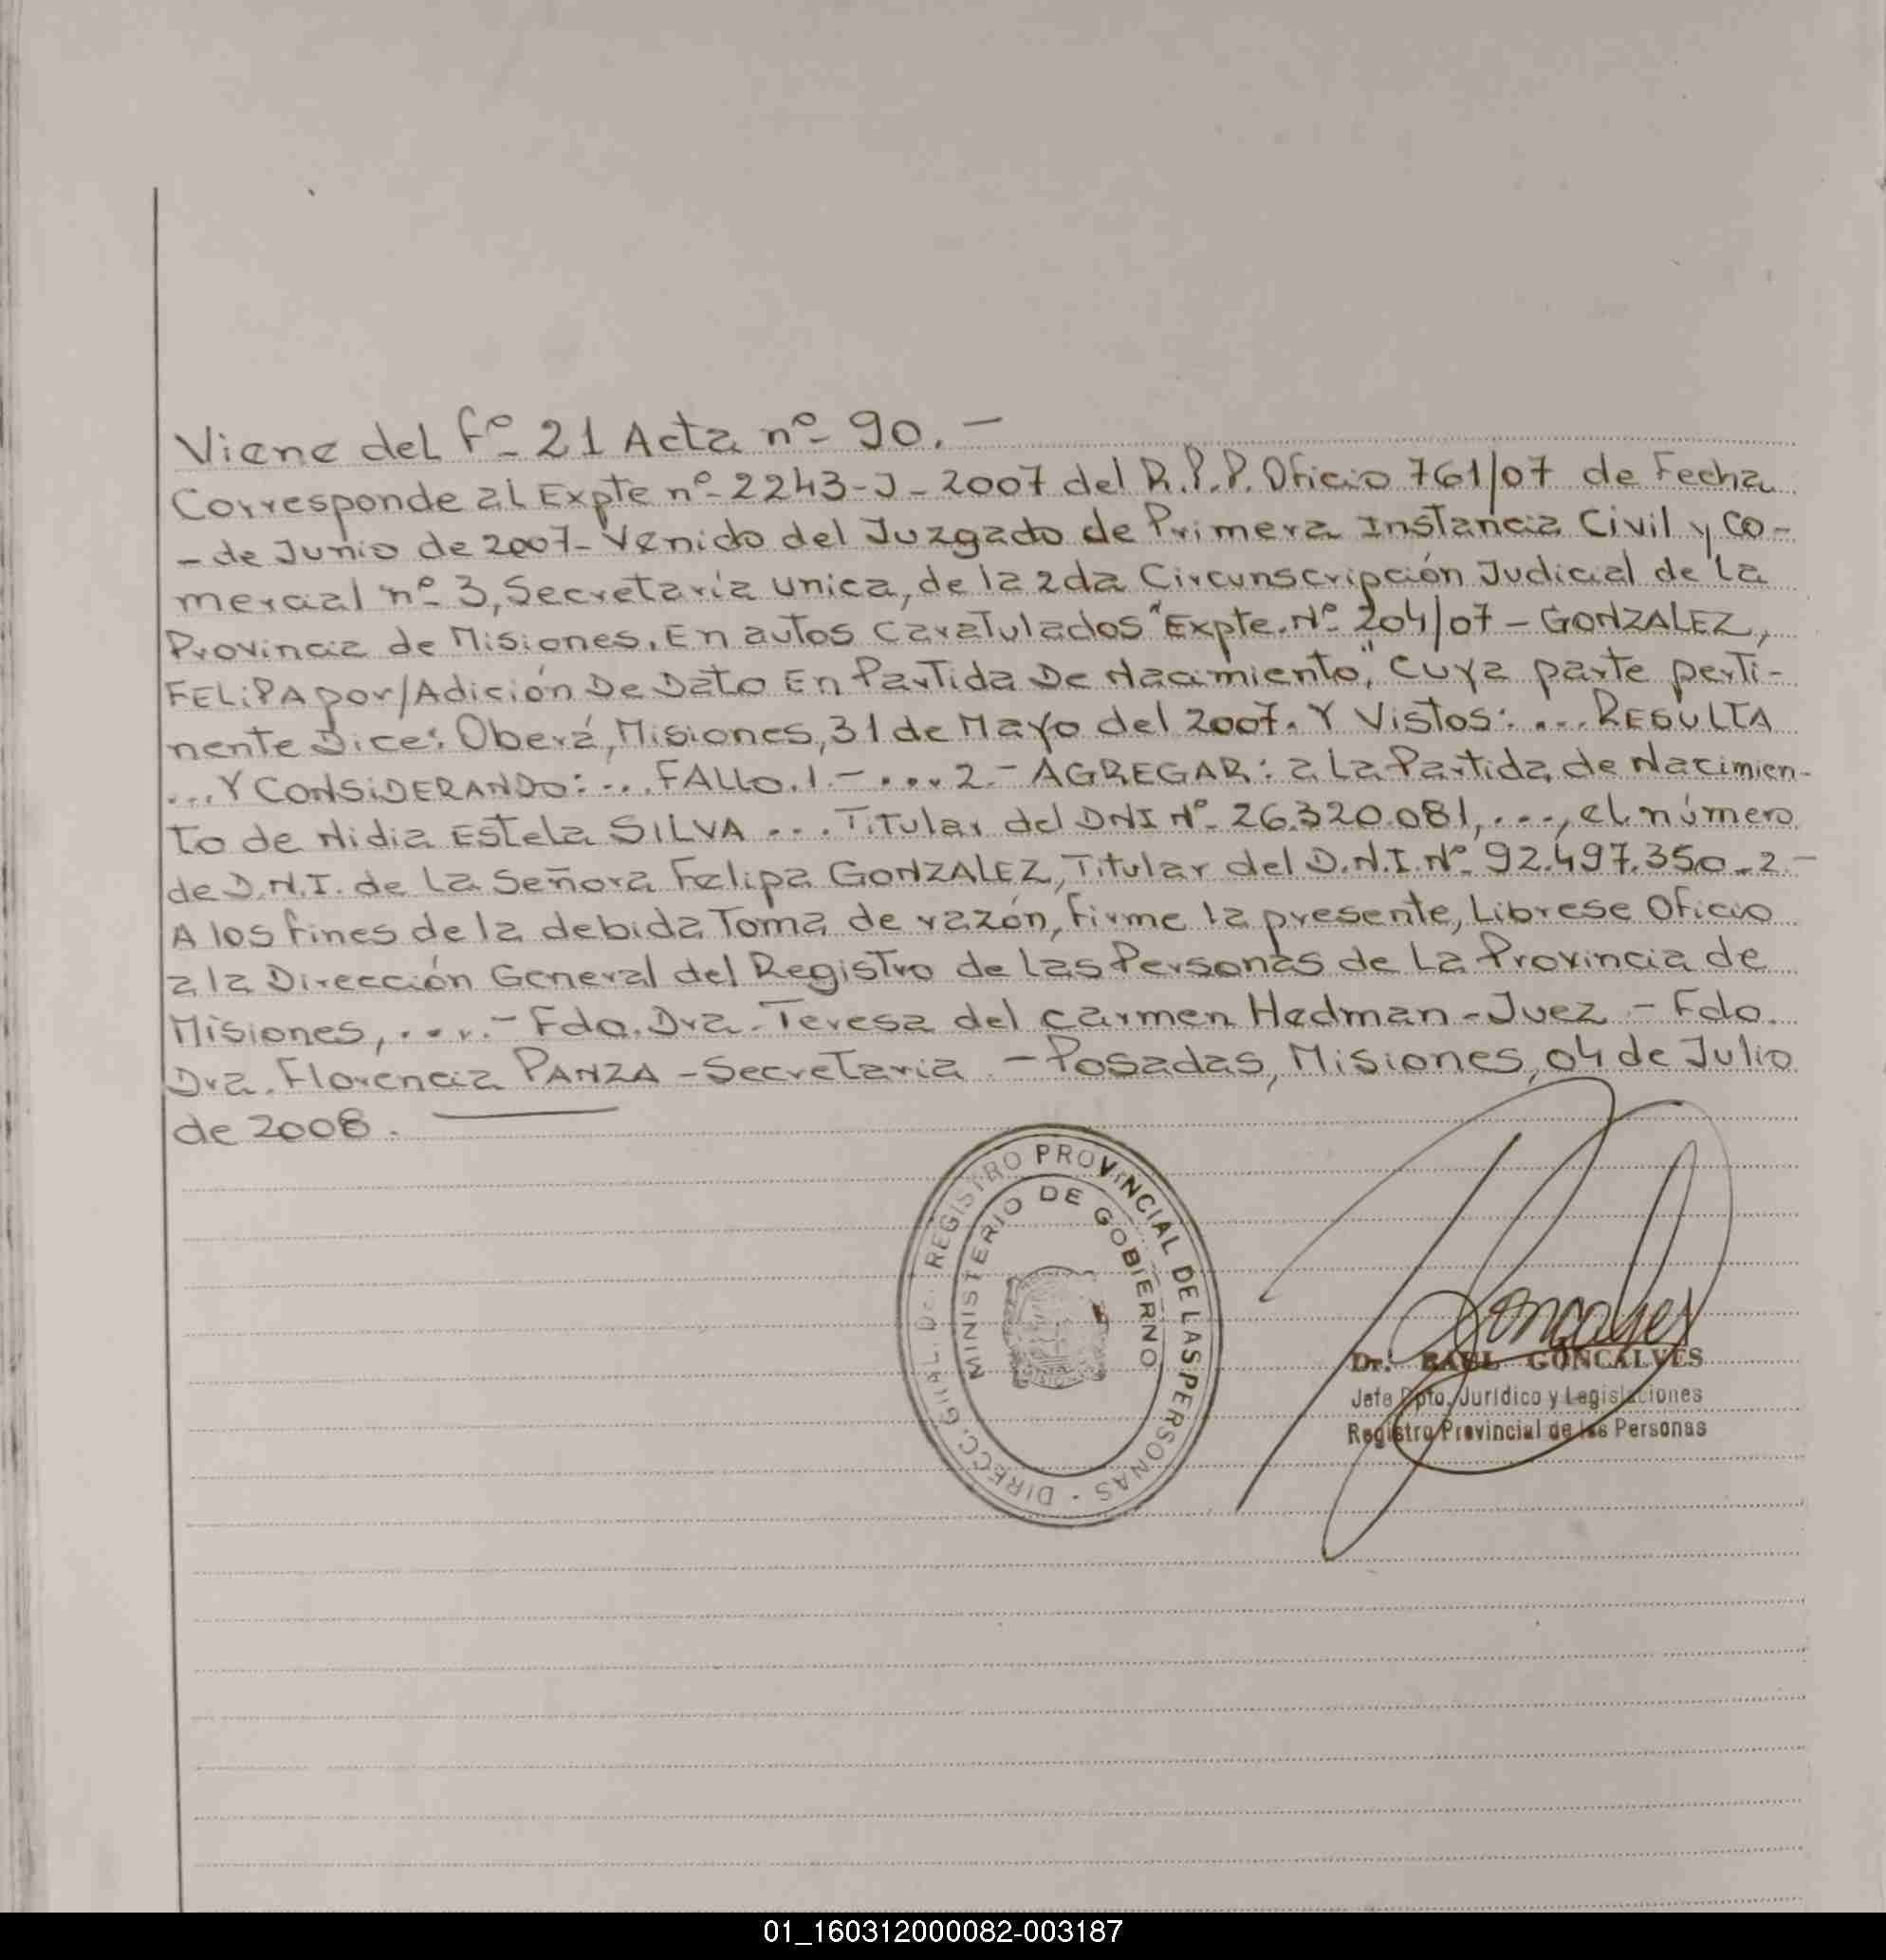 Viene del fº 21 Acta nº 90. —
Corresponde al Expte nº 2243-J-2007 del R.P.P. Oficio 761/07 de Fecha
- de Junio de 2007- Venido del Juzgado de Primera Instancia Civil y Co-
mercial nº 3, Secretaría unica, de la 2da Circunscripción Judicial de La
Provincia de Misiones. En autos caratulados "Expte. Nº 204/07 - GONZALEZ,
FELiPA por/Adición De Dato En Partida De Nacimiento," cuya parte perti-
nente Dice: Oberá, Misiones, 31 de Mayo del 2007. Y Vistos: .... RESULTA
... Y CONSiDERANDO: ... FALLO. 1.- .... 2.- AGREGAR: a La Partida de Nacimien-
to de Nidia Estela SILVA ... Titular del DNI Nº 26.320.081, ..., el número
de D.N.I. de La Señora Felipa GONZALEZ, Titular del D.N.I. Nº 92.497.350.- 2.-
A los fines de la debida Toma de razón, firme la presente, Librese Oficio
a la Dirección General del Registro de Las Personas de La Provincia de
Misiones, .....- Fdo. Dra. Teresa del Carmen Hedman - Juez - Fdo.
Dra. Florencia PANZA - Secretaria. - Posadas, Misiones, 04 de Julio
de 2008.
DIRECC. GRAL. DEL REGISTRO PROVINCIAL DE LAS PERSONAS -
MINISTERIO DE GOBIERNO
Goncalves
Dr. RAUL GONCALVES
Jefe Dpto. Jurídico y Legislaciones
Registro Provincial de las Personas
01_160312000082-003187